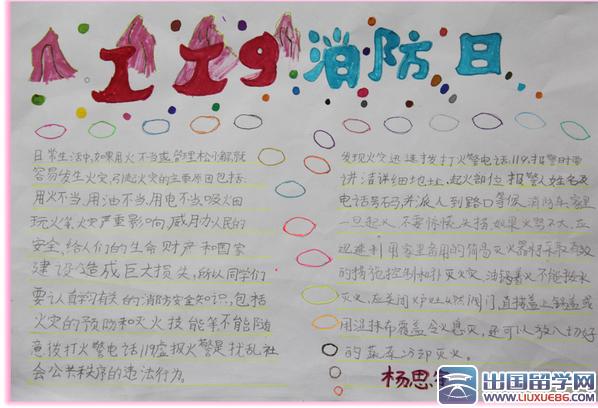 119消防日
日常生活中,如果用火不当或管理松小解,就
容易发生火灾,引起火灾的主要原因包括:
用火不当、用油不当、用电不当吸烟
玩火等,火灾严重影响威胁人民的
安全,给人们的生命财产和国家
建设造成巨大损失,所以同学们
要认真学习有关的消防安全知识,包括
火灾的预防和灭火技能等不能随
意拨打火警电话119虚报火警是扰乱社
会公共秩序的违法行为。
发现火灾迅速拨打火警电话119,报警时要
讲清详细地址,起火部位,报警人姓名及
电话号码并派人到路口等候消防车,家里
一旦起火,不要惊慌失措,如果火势不大,应
迅速利用家里备用的简易灭火器材采取有效
的措施控制和扑灭火灾,油锅着火不能泼水
灭火,应关闭炉灶燃气阀门,直接盖上锅盖或
用湿抹布覆盖令火熄灭,还可以放入切好
的蔬菜冷却灭火。
杨思
出国留学网
WWW.LIUXUE86.COM